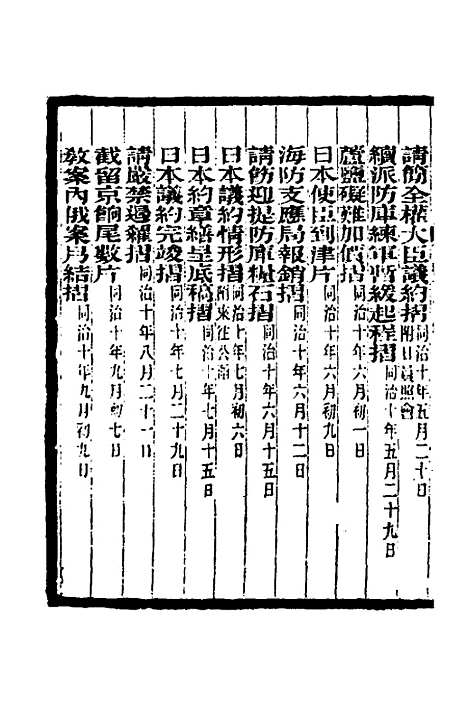 請飭全權大臣議約摺同治十年五月二十日附日員照會
續派防庫練軍暫緩起程摺同治十年五月二十九日
蘆鹽礙難加價摺同治十年六月初一日
日本使臣到津片同治十年六月初九日
海防支應局報銷摺同治十年六月十二日
請飭迎提防庫糧石摺同治十年六月十五日
日本議約情形摺同治十年七月初六日附來往公牘
日本約章繕呈底稿摺同治十年七月十五日
日本議約完竣摺同治十年七月二十九日
請嚴禁遏糴摺同治十年八月二十一日
截留京餉尾數片同治十年九月初七日
教案內俄案另結摺同治十年九月初九日